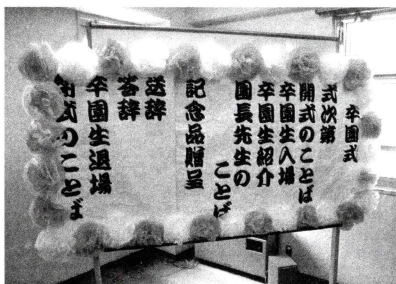 卒園式
式次第
開式のことば
卒園生入場
卒園生紹介
園長先生の
ことば
記念品贈呈
送辞
答辞
卒園生退場
閉式のことば